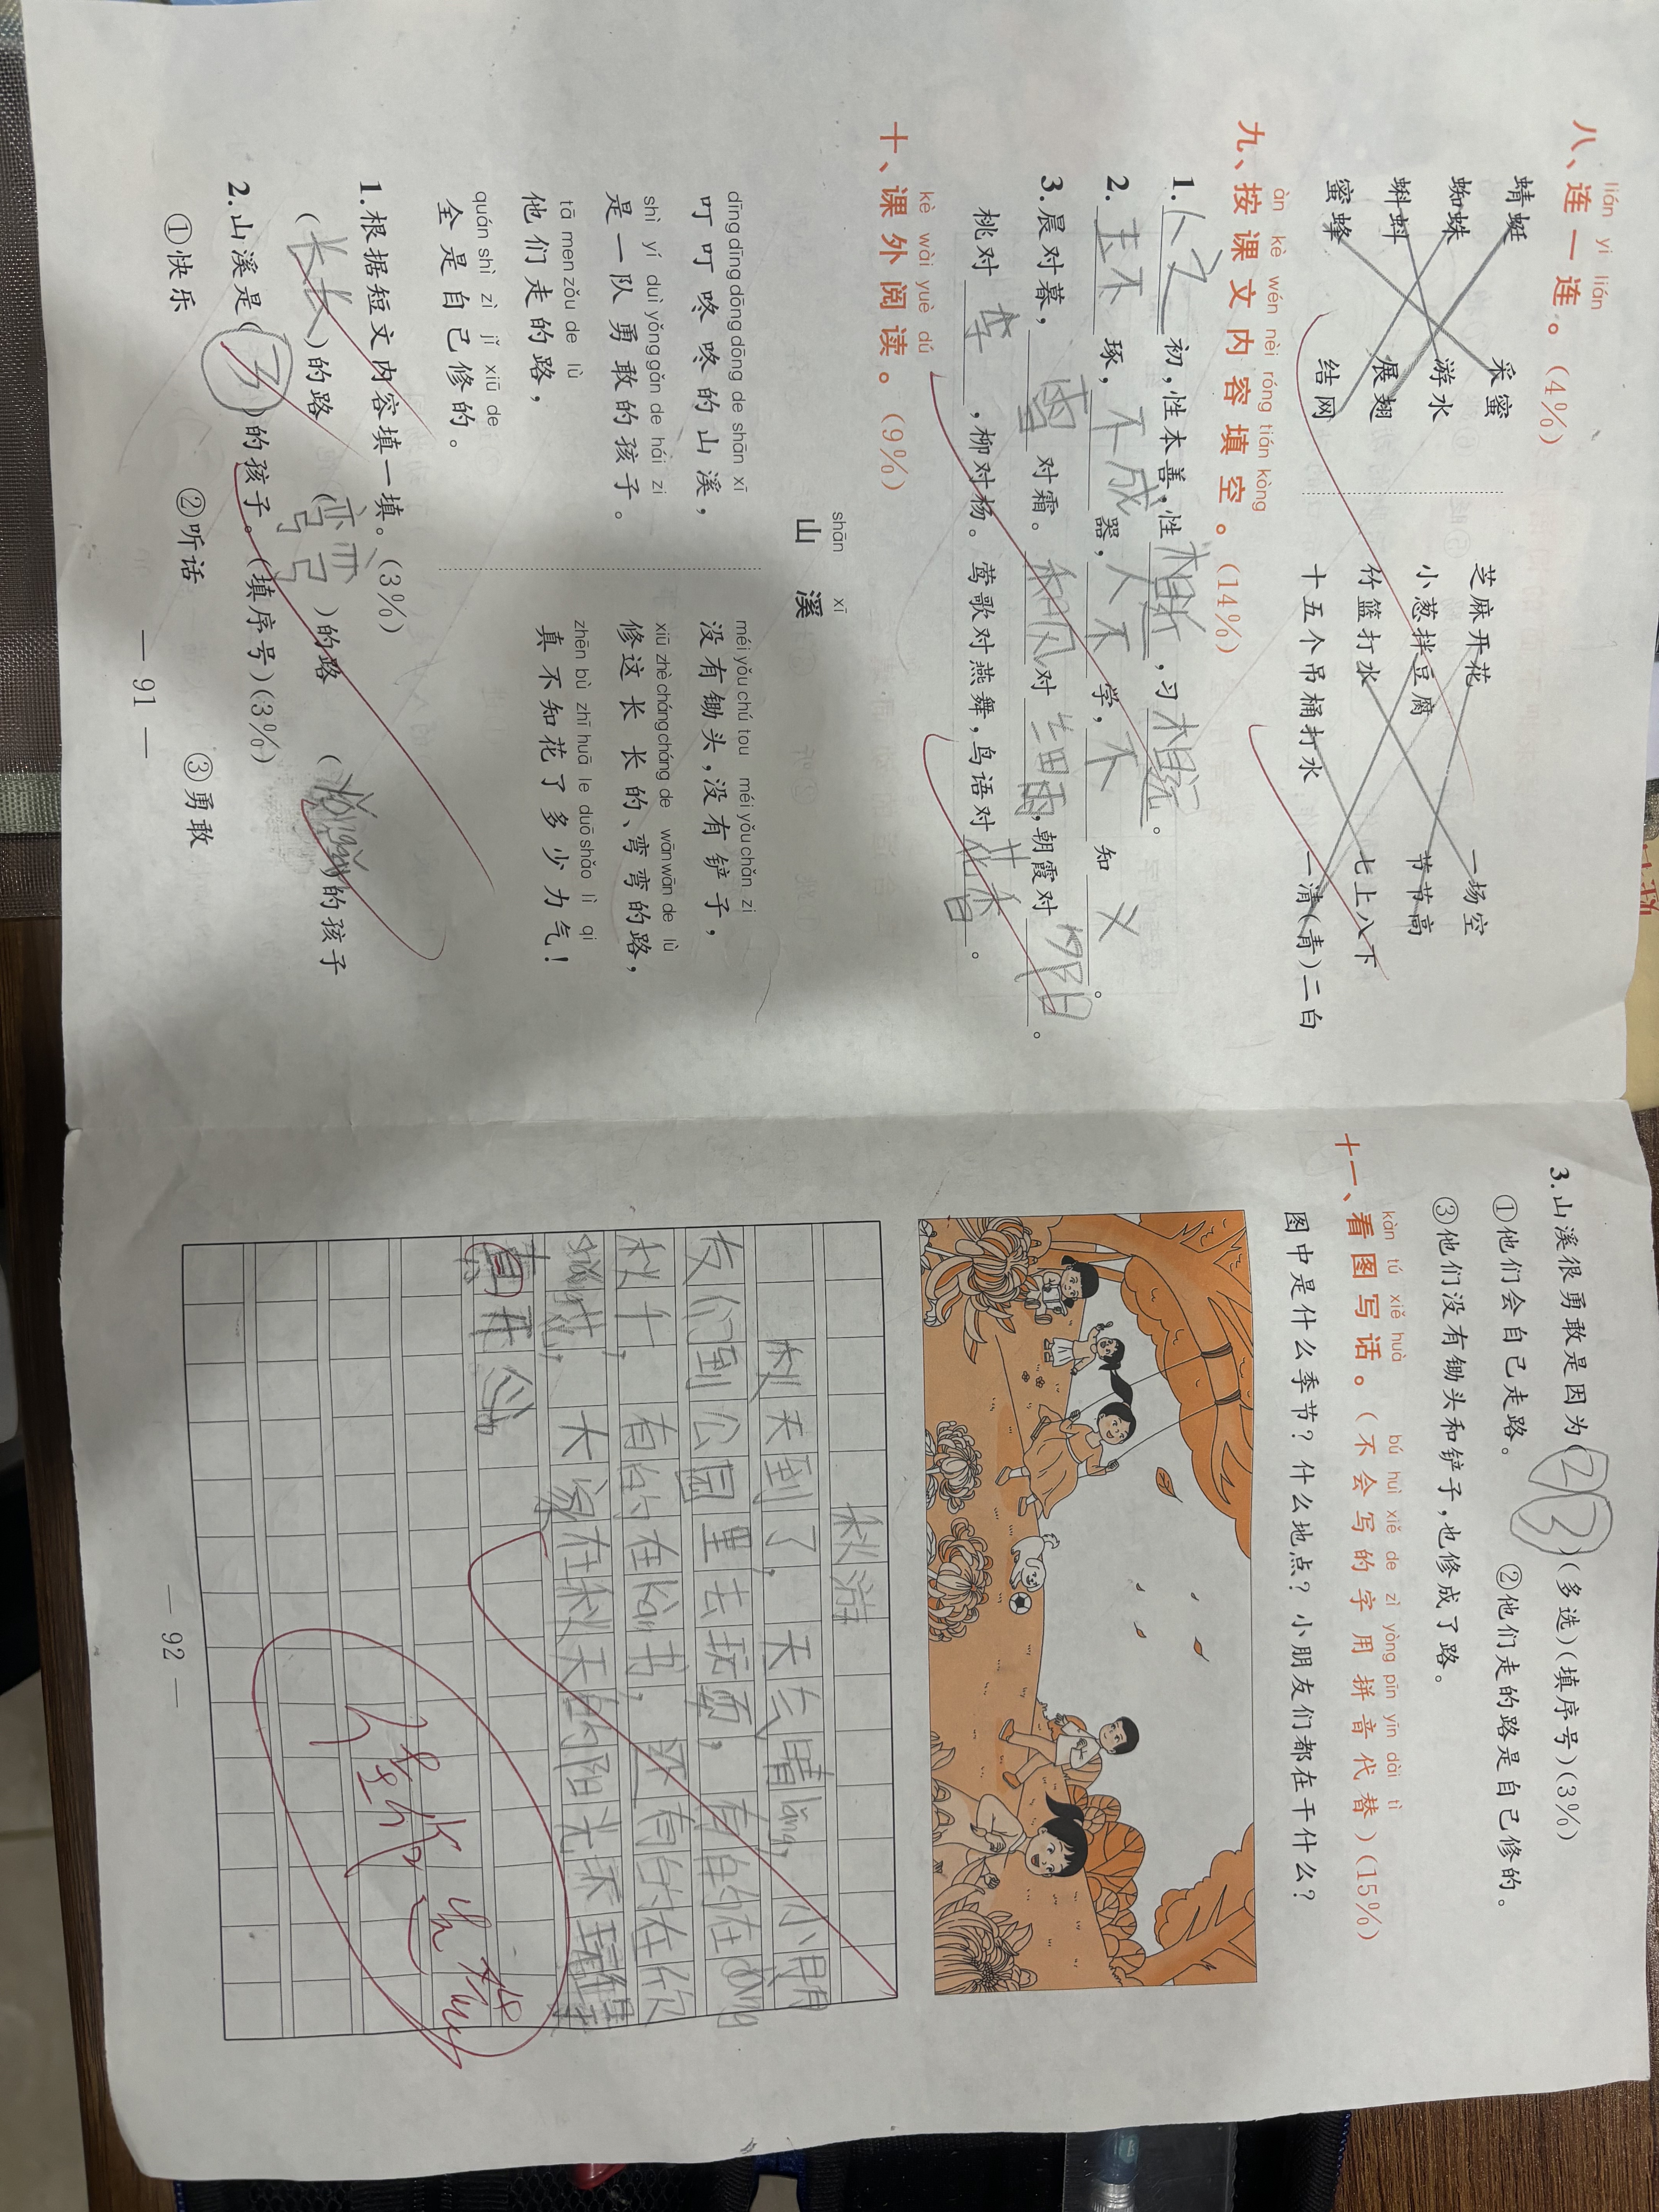 八、连一连。(4%)
lián yi lián
蜻蜓 采蜜 芝麻开花 一场空
蜘蛛 游水 小葱拌豆腐 节节高
蝌蚪 展翅 竹篮打水 七上八下
蜜蜂 结网 十五个吊桶打水 一清(青)二白
àn kè wén nèi róng tián kòng
九、按课文内容填空。(14%)
1.人之初,性本善,性相近,习相远。
2.玉不琢,不成器,人不学,不知义。
3.晨对暮,雪对霜。和风对细雨,朝霞对夕阳。
桃对李,柳对杨。莺歌对燕舞,鸟语对花香。
kè wài yuè dú
十、课外阅读。(9%)
shān xī
山溪
dīng dīng dōng dōng de shān xī
叮叮咚咚的山溪,
shì yí duì yǒng gǎn de hái zi
是一队勇敢的孩子。
tā men zǒu de lù
他们走的路,
quán shì zì jǐ xiū de
全是自己修的。
méi yǒu chú tou méi yǒu chǎn zi
没有锄头,没有铲子,
xiū zhè cháng cháng de wān wān de lù
修这长长的、弯弯的路,
zhēn bù zhī huā le duō shǎo lì qi
真不知花了多少力气!
1.根据短文内容填一填。(3%)
(长长)的路 (弯弯)的路 ( )的孩子
2.山溪是(3)的孩子。(填序号)(3%)
①快乐 ②听话 ③勇敢
— 91 —
3.山溪很勇敢是因为(②③)(多选)(填序号)(3%)
①他们会自己走路。 ②他们走的路是自己修的。
③他们没有锄头和铲子,也修成了路。
kàn tú xiě huà bú huì xiě de zì yòng pīn yīn dài tì
十一、看图写话。(不会写的字用拼音代替)(15%)
图中是什么季节?什么地点?小朋友们都在干什么?
秋游
秋天到了,天气晴lǎng,小朋
友们到公园里去玩耍,有的在dàng
秋千,有的在kàn书,还有的在欣
赏花,大家在秋天的阳光下玩得
真开心
— 92 —